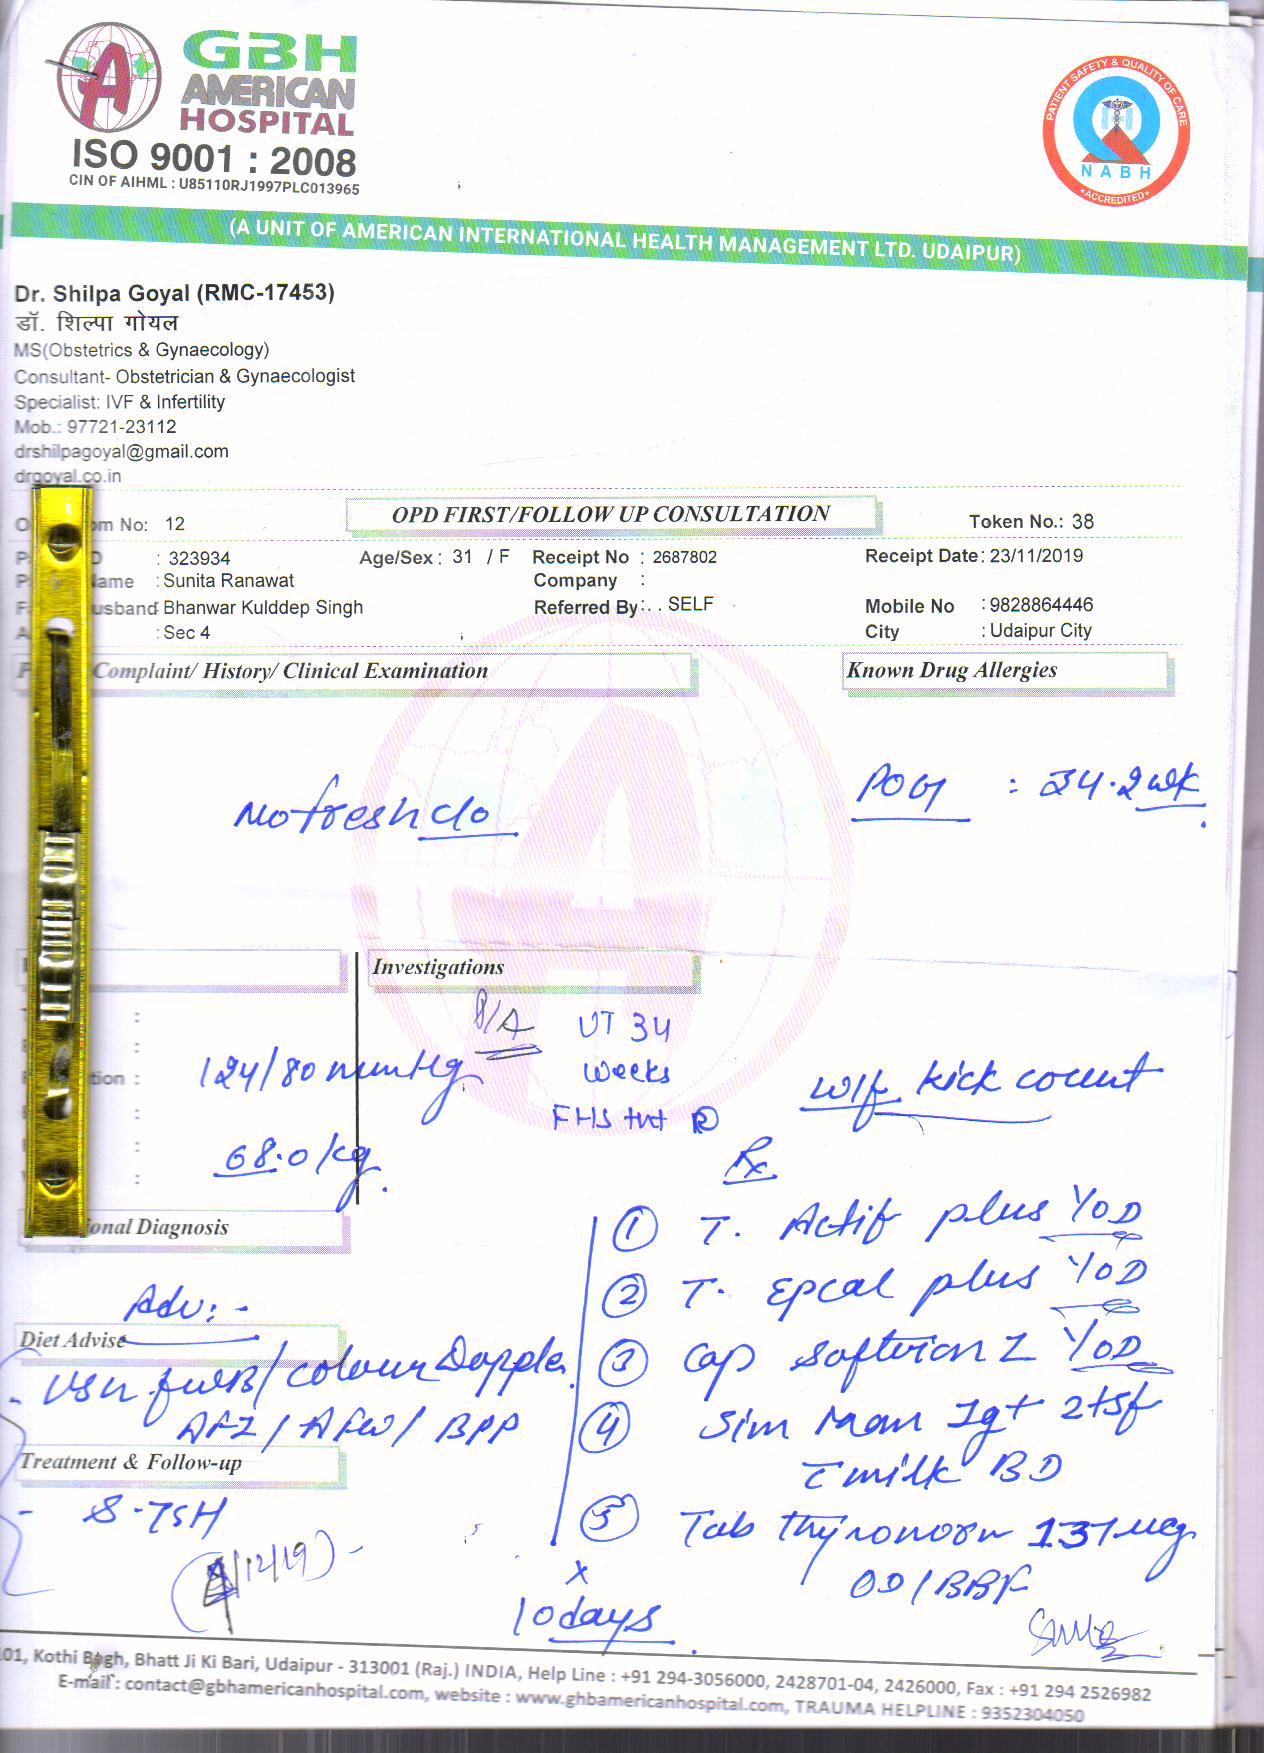 GBH
AMERICAN
HOSPITAL
ISO 9001 : 2008
CIN OF AIHML : U85110RJ1997PLC013965
PATIENT SAFETY & QUALITY OF CARE
NABH
ACCREDITED
(A UNIT OF AMERICAN INTERNATIONAL HEALTH MANAGEMENT LTD. UDAIPUR)
Dr. Shilpa Goyal (RMC-17453)
डॉ. शिल्पा गोयल
MS(Obstetrics & Gynaecology)
Consultant- Obstetrician & Gynaecologist
Specialist: IVF & Infertility
Mob.: 97721-23112
drshilpagoyal@gmail.com
drgoyal.co.in
No: 12 OPD FIRST/FOLLOW UP CONSULTATION Token No.: 38
: 323934 Age/Sex : 31 / F Receipt No : 2687802 Receipt Date: 23/11/2019
Name : Sunita Ranawat Company :
: Bhanwar Kulddep Singh Referred By: . . SELF Mobile No : 9828864446
: Sec 4 City : Udaipur City
Complaint/ History/ Clinical Examination Known Drug Allergies
POG : 34.2 wk
No fresh c/o
Investigations
P/A UT 34
weeks
124/80 mmHg
FHS +nt R
W/f kick count
68.0 kg
Rx
Diagnosis
① T. Actif plus YOD
② T. Epcal plus YOD
Adv: -
Diet Advise
③ Cap Softvion Z YOD
- USG fwB/colour Doppler
AFI / AFW / BPP
④ Sim Mom 1gt 2tsf
c milk BD
Treatment & Follow-up
- S-TSH
⑤ Tab Thyronorm 137 mcg
OD / BBF
/12/19) -
x
10 days
101, Kothi Bagh, Bhatt Ji Ki Bari, Udaipur - 313001 (Raj.) INDIA, Help Line : +91 294-3056000, 2428701-04, 2426000, Fax : +91 294 2526982
E-mail : contact@gbhamericanhospital.com, website : www.ghbamericanhospital.com, TRAUMA HELPLINE : 9352304050